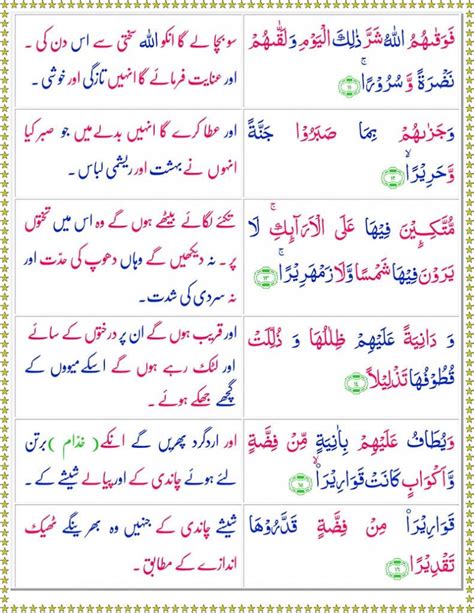 فَوَقٰىهُمُ اللّٰهُ شَرَّ ذٰلِكَ الْيَوْمِ وَلَقّٰىهُمْ
نَضْرَةً وَّ سُرُوْرًا ۚ ﴿۱۱﴾
سو بچا لے گا انکو اللہ سختی سے اس دن کی ۔
اور عنایت فرمائے گا انہیں تازگی اور خوشی ۔
وَ جَزٰىهُمْ بِمَا صَبَرُوْا جَنَّةً
وَّ حَرِيْرًا ۙ ﴿۱۲﴾
اور عطا کرے گا انہیں بدلے میں جو صبر کیا
انہوں نے بہشت اور ریشمی لباس ۔
مُّتَّكِـِٕيْنَ فِيْهَا عَلَى الْاَرَآىِٕكِ ۚ لَا
يَرَوْنَ فِيْهَا شَمْسًا وَّلَا زَمْهَرِيْرًا ۚ ﴿۱۳﴾
تکئے لگائے بیٹھے ہوں گے وہ اس میں تختوں
پر ۔ نہ دیکھیں گے وہاں دھوپ کی حدّت اور
نہ سردی کی شدت ۔
وَ دَانِيَةً عَلَيْهِمْ ظِلٰلُهَا وَ ذُلِّلَتْ
قُطُوْفُهَا تَذْلِيْلًا ﴿۱۴﴾
اور قریب ہوں گے ان پر درختوں کے سائے
اور لٹک رہے ہوں گے اسکے میووں کے
گچھے جھکے ہوئے ۔
وَيُطَافُ عَلَيْهِمْ بِاٰنِيَةٍ مِّنْ فِضَّةٍ
وَّ اَكْوَابٍ كَانَتْ قَوَارِيْرَا۠ ۙ ﴿۱۵﴾
اور اردگرد پھریں گے انکے ( خدّام ) برتن
لئے ہوئے چاندی کے اور پیالے شیشے کے ۔
قَوَارِيْرَا۠ مِنْ فِضَّةٍ قَدَّرُوْهَا
تَقْدِيْرًا ﴿۱۶﴾
شیشے چاندی کے جنہیں وہ بھرینگے ٹھیک
اندازے کے مطابق ۔